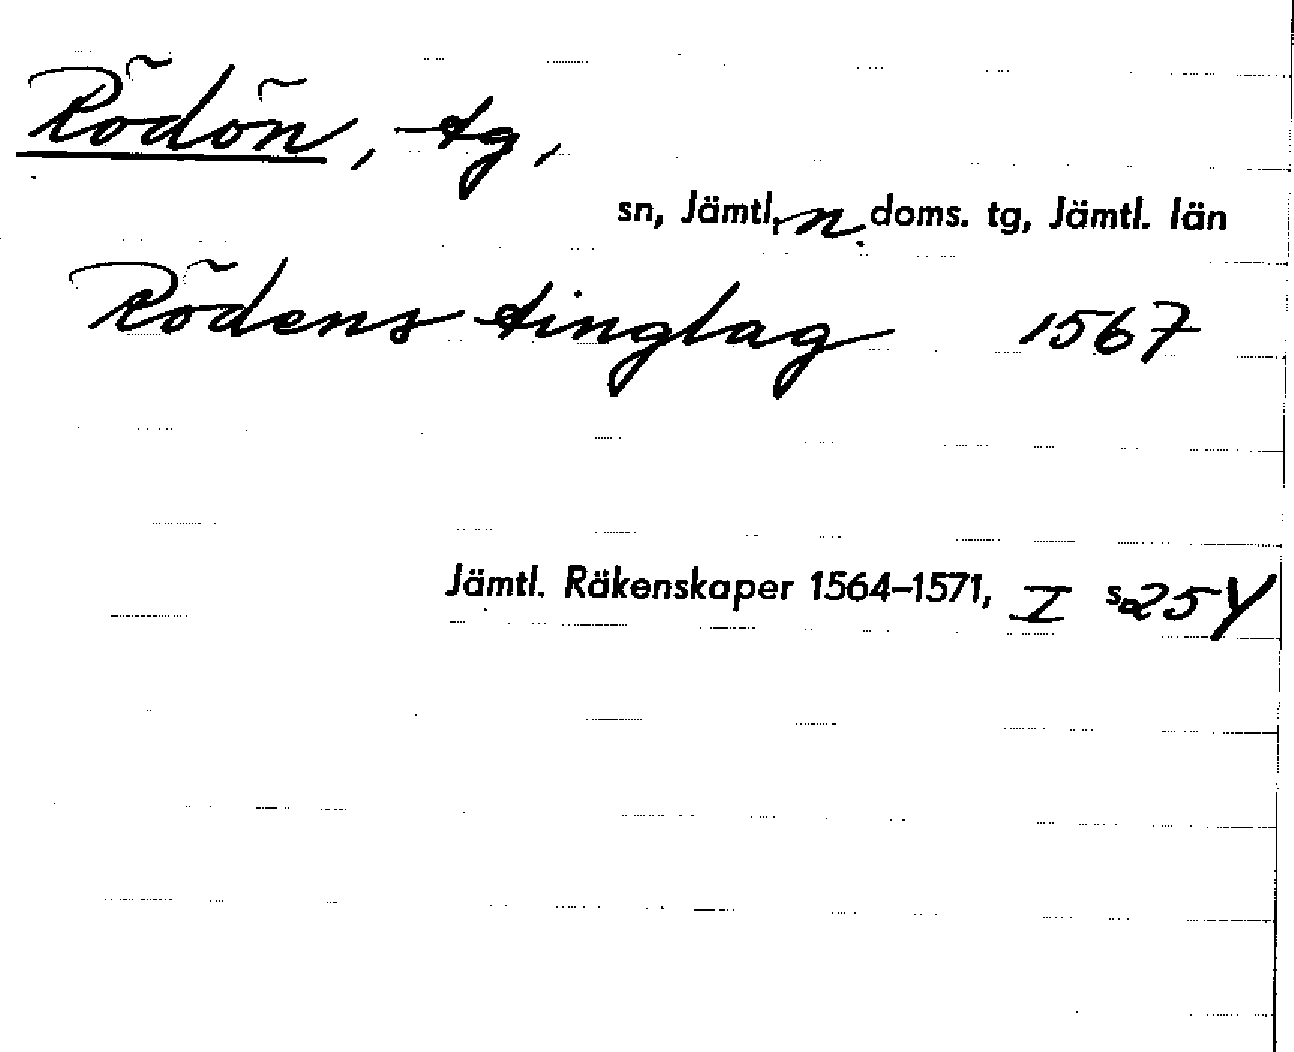 Rödön, tg,
sn, Jämtl, n. doms. tg, Jämtl. län
Rödens tinglag 1567
Jämtl. Räkenskaper 1564–1571, I s. 254